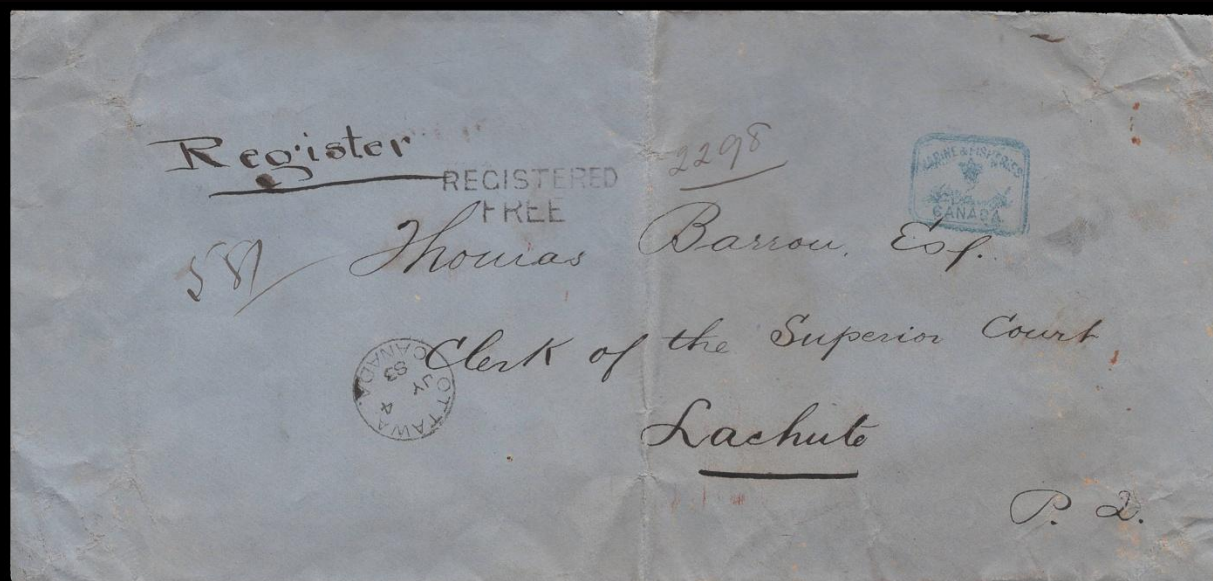 Register
REGISTERED
FREE
2298
MARINE & FISHERIES
CANADA
581
Thomas Barron, Esq.
Clerk of the Superior Court
Lachute
P. Q.
OTTAWA
JY 4
83
CANADA